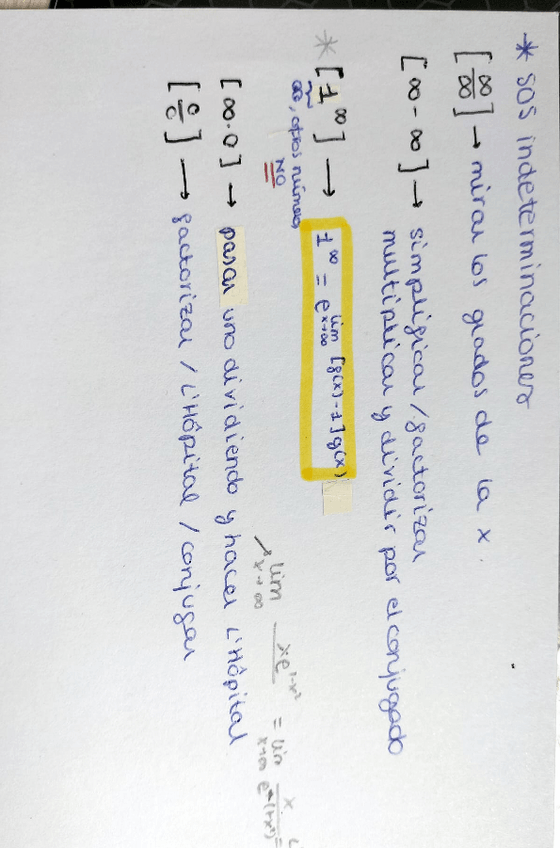 * SOS indeterminaciones
[∞/∞] → mirar los grados de la x.
[∞ - ∞] → simplificar/factorizar
multiplicar y dividir por el conjugado
* [1^∞] → 1^∞ = e^lim x→∞ [f(x)-1]g(x)
∞, otros números
NO
[∞·0] → pasar uno dividiendo y hacer L'Hôpital
→ lim x→∞ xe^1-x² = lim x→∞ x
[0/0] → factorizar / L'Hôpital / conjugar